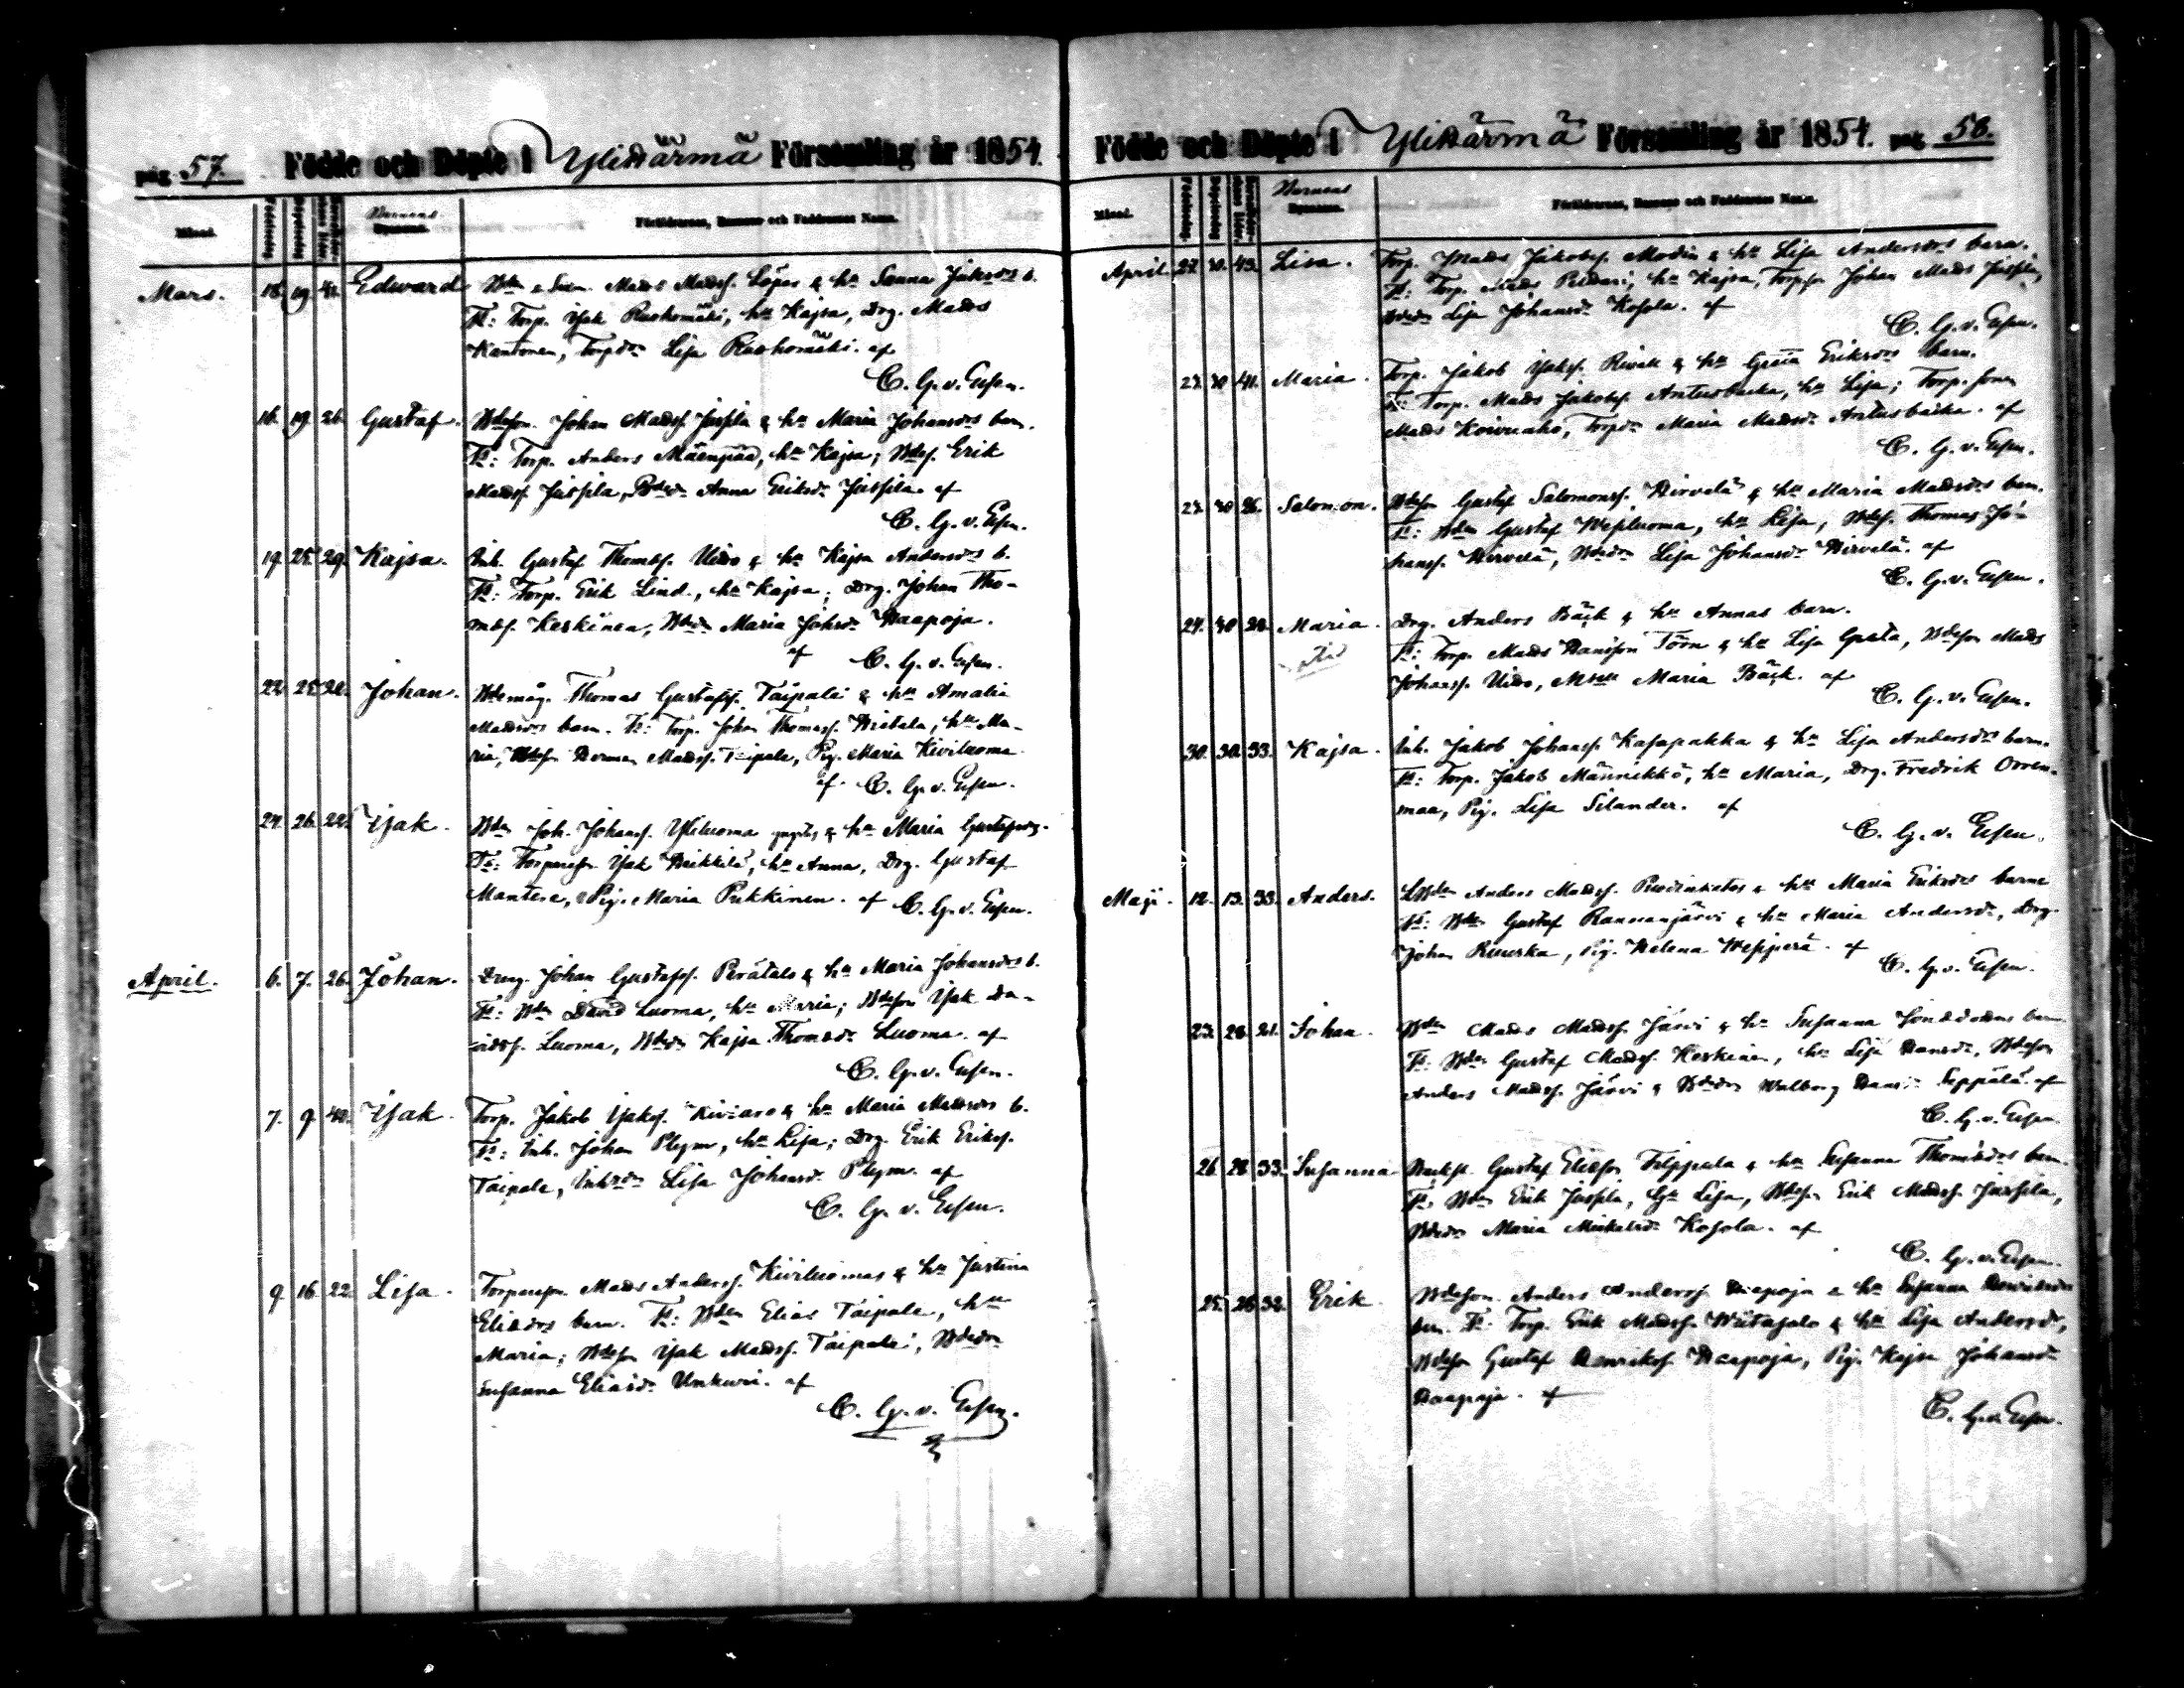 pag 57. Födde och Döpte i Ylihärmä Församling år 1854.
Månad. Födelsedag Döpelsedag Barnens Dopnamn. Föräldrarnes, Hemmans och Faddrarnes Namn.
Mars. 18. 19. 41. Edward Mads Madss. Löper & hu Sanna Jaksdrs b.
Ft: Torp. Isak Ruohomäki, hu Kajsa, Drg. Mads
Kantonen, Torpdr Lisa Ruohomäki. af
C. G. v. Essen.
16. 19. 26. Gustaf. Bdeson Johan Madss. Jussila & hu Maria Johansdrs barn.
Ft: Torp. Anders Mäenpää, hu Kajsa; Bdes. Erik
Madss. Jussila, Bdedr Anna Eriksdr Jussila. af
C. G. v. Essen.
19. 25. 29. Kajsa. Inh. Gustaf Thomass. Uitto & hu Kajsa Andersdrs b.
Ft: Torp. Erik Lind., hu Kajsa; Drg. Johan Tho-
mass. Keskinen, Bdedr Maria Johsdr Haapoja.
af C. G. v. Essen.
22. 25. 28. Johan. Bdemåg. Thomas Gustafss. Taipale & hu Amalia
Madsdrs barn. Ft: Torp. Johan Thomass. hu Ma-
ria, Bdeson Herman Madss. Taipale, Pig. Maria Kiviluoma
af C. G. v. Essen.
24. 26. 22. Isak. Bden Joh. Johanss. Yliluoma & hu Maria
Ft: Torpareson Isak Heikkilä, hu Anna, Drg. Gustaf
Mantere, Pig. Maria Pukkinen. af C. G. v. Essen.
April. 6. 7. 26. Johan. Drng. Johan Gustafss. Perätalo & hu Maria Johansdrs b.
Ft: Bden David Luoma, hu Maria; Bdeson Isak Da-
vidss. Luoma, Bdedr Kajsa Thomasdr Luoma. af
C. G. v. Essen.
7. 9. 40. Isak. Torp. Jakob Isakss. & hu Maria Madsdrs b.
Ft: Inh. Johan Plym, hu Lisa; Drg. Erik Erikss.
Taipale, Inhsdr Lisa Johansdr Plym. af
C. G. v. Essen.
9. 16. 22. Lisa. Torpareson Mads Anderss. Kiviluomas & hu Justina
Eliasdrs barn. Ft: Bden Elias Taipale, hu
Maria; Bdeson Isak Madss. Taipale, Bdedr
Susanna Eliasdr Unkuri. af
C. G. v. Essen.
Födde och Döpte i Ylihärmä Församling år 1854. pag 58.
Månad. Födelsedag Döpelsedag Barnens Dopnamn. Föräldrarnes, Hemmans och Faddrarnes Namn.
April 27. 30. 43. Lisa. Torp. Mads Jakobss. Modin & hu Lisa Andersdrs barn.
Ft: Torp. Mads hu Kajsa, Torpson Johan Mads Jussila,
Bdedr Lisa Johansdr Kosola. af
C. G. v. Essen.
23. 30. 41. Maria. Torp. Jakob Isakss. & hu Greta Eriksdrs barn.
Ft: Torp. Mads Jakobss. Antusbacka, hu Lisa; Torp. sonen
Mads Koivuaho, Torpdr Maria Madsdr Antusbacka. af
C. G. v. Essen.
23. 30. 26. Salomon. Bdeson Gustaf Salomonss. Hirvelä & hu Maria Madsdrs barn.
Ft: Bden Gustaf Wesiluoma, hu Lisa, Bdes. Thomas Jo-
hanss. Hirvelä, Bdedr Lisa Johansdr Hirvelä. af
C. G. v. Essen.
24. 30. 28. Maria. Drg. Anders Bäck & hu Annas barn.
Ft: Torp. Mads Hansson Törn & hu Lisa Greta, Bdeson Mads
Johanss. Uitto, Msell Maria Bäck. af
C. G. v. Essen.
30. 30. 33. Kajsa. Inh. Jakob Johanss. Kasapakka & hu Lisa Andersdrs barn.
Ft: Torp. Jakob Männikkö, hu Maria, Drg. Fredrik Orren-
maa, Pig. Lisa Silander. af
C. G. v. Essen.
Maji. 12. 13. 33. Anders. Bden Anders Madss. & hu Maria Eriksdrs barn
Ft: Bden Gustaf Rannanjärvi & hu Maria Andersdr, Drg.
Johan Ruuska, Pig. Helena Wesperä. af
C. G. v. Essen.
23. 28. 21. Johan. Bden Mads Madss. Järvi & hu Susanna barn
Ft: Bden Gustaf Madss. Keskinen, hu Lisa Hansdr, Bdeson
Anders Madss. Järvi & Bdedr Walborg Seppälä. af
C. G. v. Essen.
26. 28. 33. Susanna Gustaf Eliasson Filppula & hu Susanna Thomasdrs barn.
Ft: Bden Erik Jussila, hu Lisa, Bdeson Erik Madss. Jussila,
Bdedr Maria Michelsdr Kosola. af
C. G. v. Essen.
25. 28. 32. Erik. Bdeson Anders Anderss. Haapoja & hu Susanna
barn. Ft: Torp. Erik Madss. Wiitasalo & hu Lisa Andersdr,
Bdeson Gustaf Henrikss. Haapoja, Pig. Kajsa Johansdr
Haapoja. af
C. G. v. Essen.